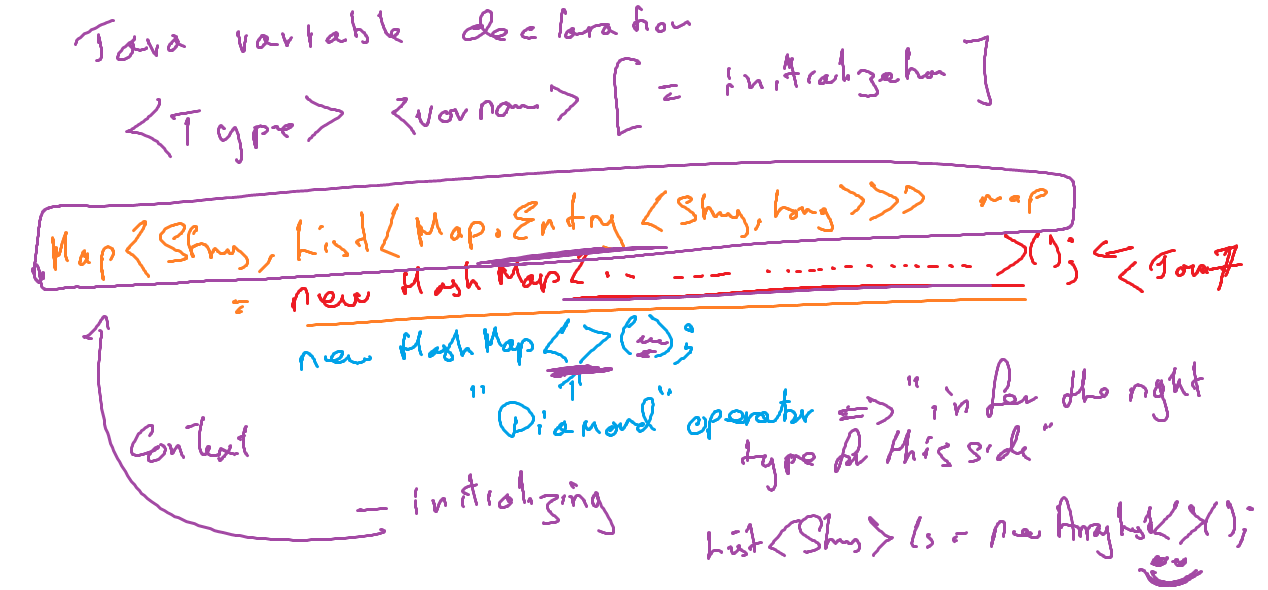 Java variable declaration
<Type> <varnam> [ = initialization ]
Map<String, List<Map.Entry<String, Long>>> map
= new HashMap<.. --- .............. >(); <= < Java 7
new HashMap<>( );
"Diamond" operator => "infer the right
type for this side"
Context
- initializing
List<String> ls = new ArrayList<>();